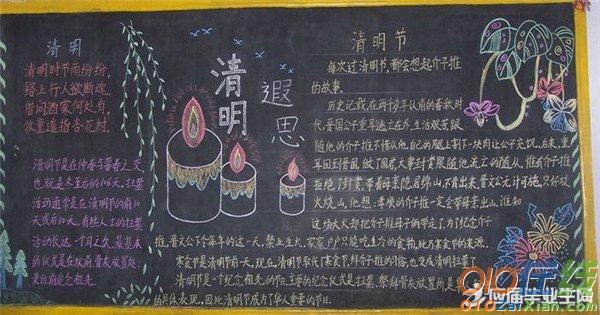 清明
清明时节雨纷纷,
路上行人欲断魂。
借问酒家何处有,
牧童遥指杏花村。
清明节是在仲春与暮春之交,
也就是冬至后的106天。扫墓
活动通常是在清明节的前10
天或后10天。有些人士的扫墓
活动长达一个月之久。最基本
的仪式是在坟前、骨灰放置处
灵位前追念祖先。
清明
遐思
清明节
每次过清明节,都会想起介子推
的故事。
历史记载,在两千多年以前的春秋时
代,晋国公子重耳逃亡在外,生活艰苦,跟
随他的介子推不惜从他自己的腿上割下一块肉让公子充饥。后来,重
耳回到晋国,做了国君,大事封赏跟随他流亡的随从,惟有介子推
拒绝了封赏,带着母亲隐居绵山,不肯出来,晋文公无计可施,只好放
火烧山,他想,孝顺的介子推一定会带母亲出山。谁知
这场大火却把介子推母子俩带走了。为了纪念介子
推,晋文公下令每年的这一天,禁止生火,家家户户只能吃生冷的食物,此乃寒食节的来源。
寒食节是清明节前一天,现在,清明节取代了寒食节,拜介子推的习俗,也变成清明扫墓了
清明节是一个纪念祖先的节日。主要的纪念仪式是扫墓、祭拜骨灰放所是
的具体表现,因此清明节成为了华人重要的节日。
010在线
应届毕业生网
010ZaiXian.com